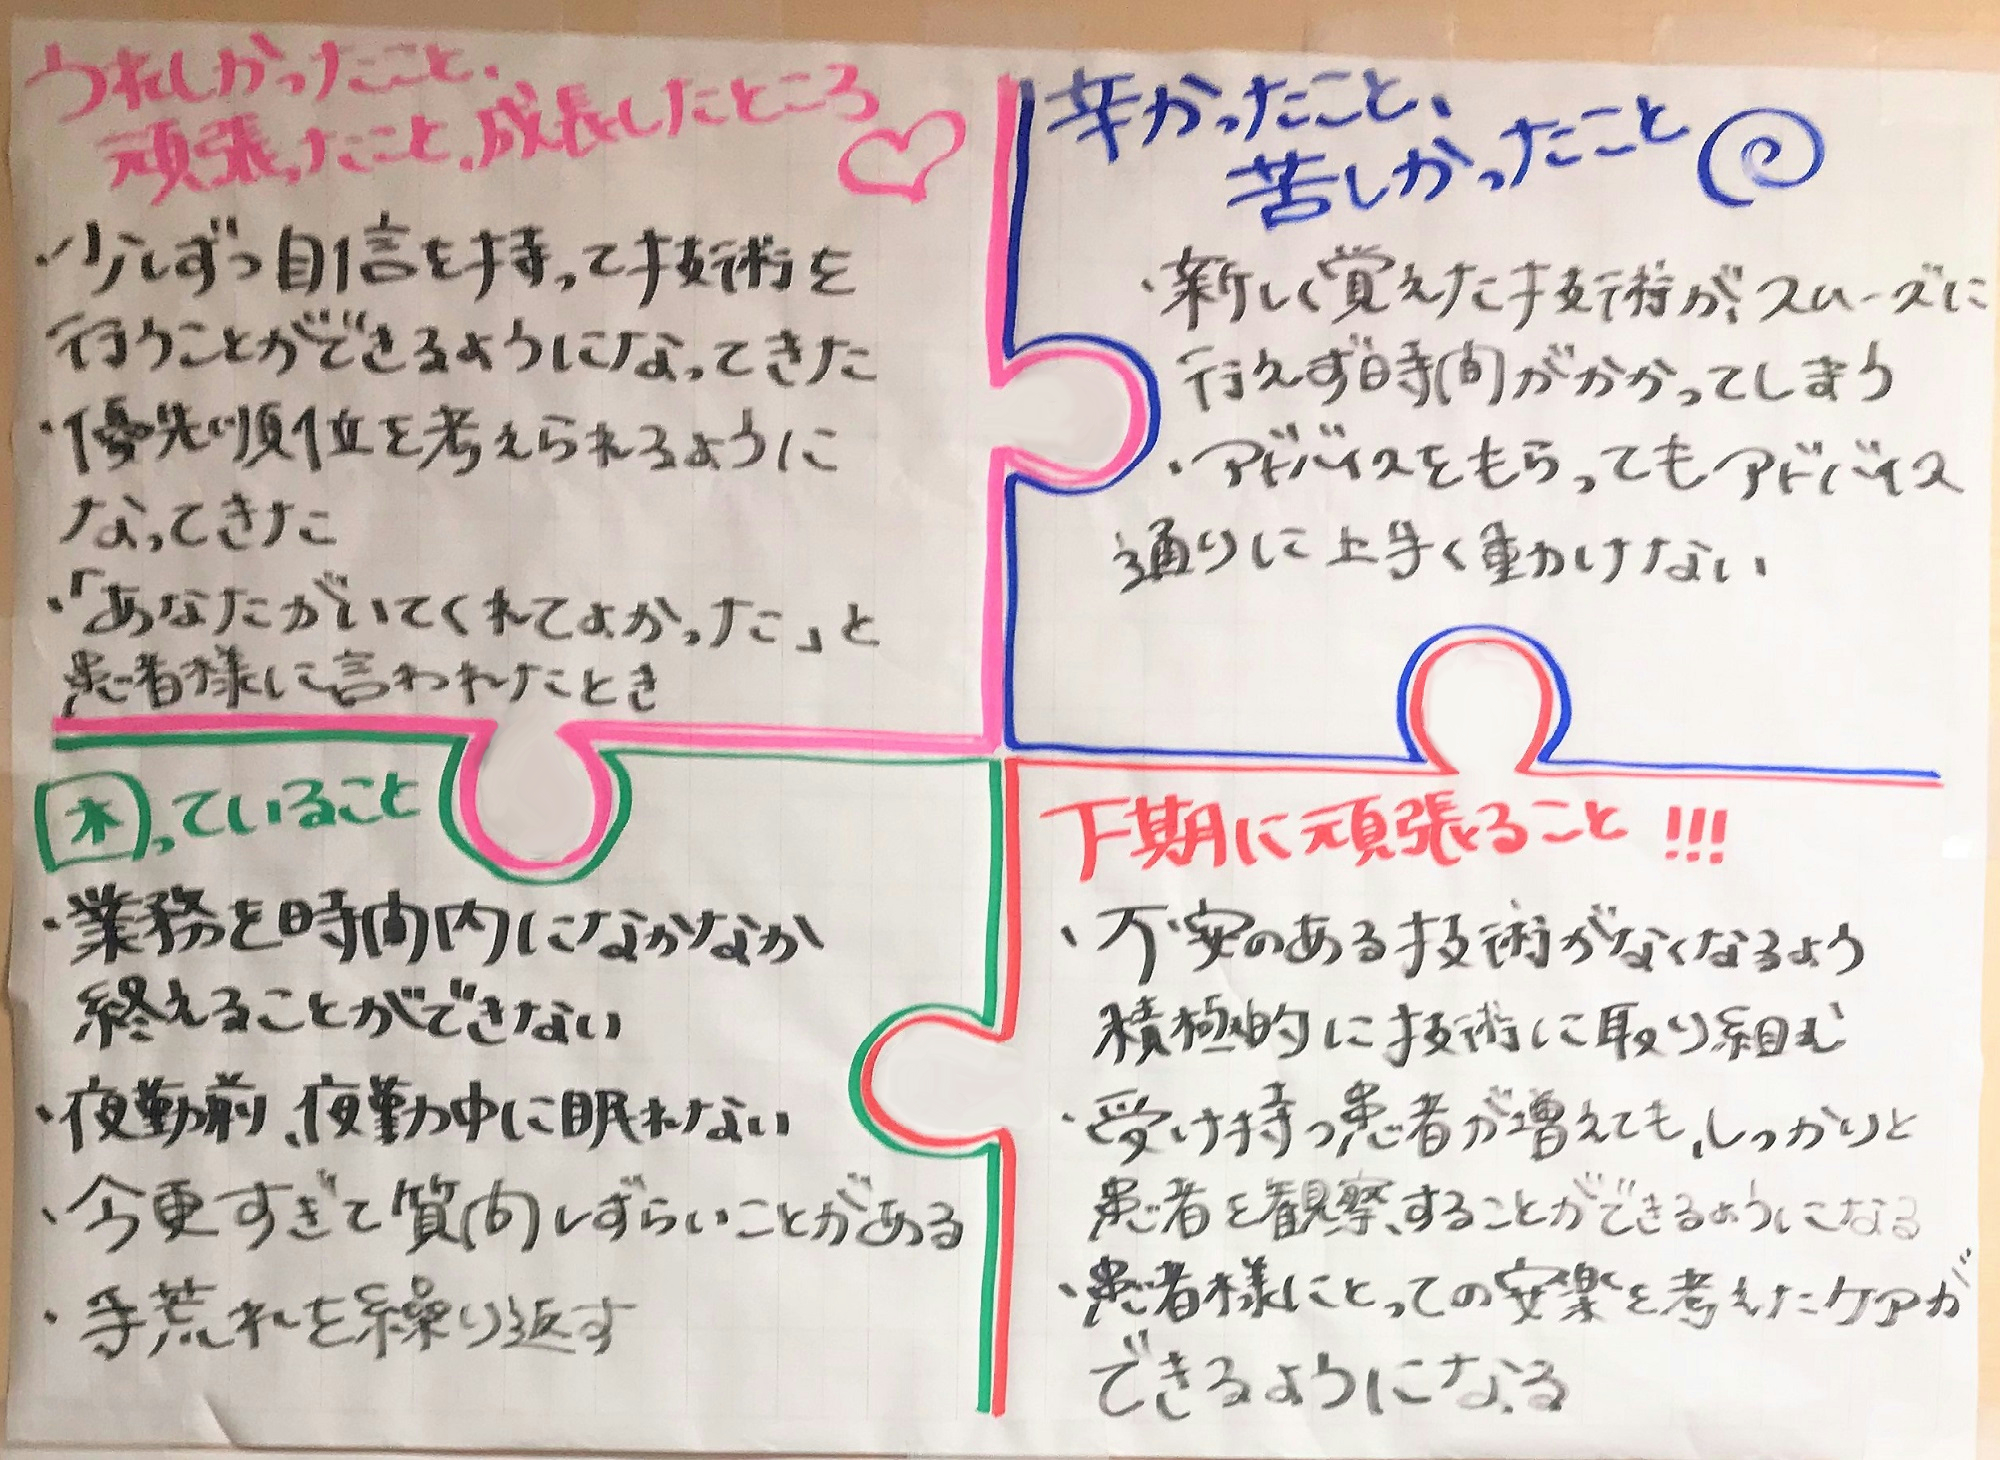 うれしかったこと、
頑張ったこと、成長したところ
・少しずつ自信を持って技術を
行うことができるようになってきた
・優先順位を考えられるように
なってきた
・「あなたがいてくれてよかった」と
患者様に言われたとき
辛かったこと、
苦しかったこと
・新しく覚えた技術が、スムーズに
行えず時間がかかってしまう
・アドバイスをもらってもアドバイス
通りに上手く動かけない
困っていること
・業務を時間内になかなか
終えることができない
・夜勤前、夜勤中に眠れない
・今更すぎて質問しずらいことがある
・手荒れを繰り返す
下期に頑張ること!!!
・不安のある技術がなくなるよう
積極的に技術に取り組む
・受け持つ患者が増えても、しっかりと
患者を観察、することができるようになる
・患者様にとっての安楽を考えたケアが
できるようになる